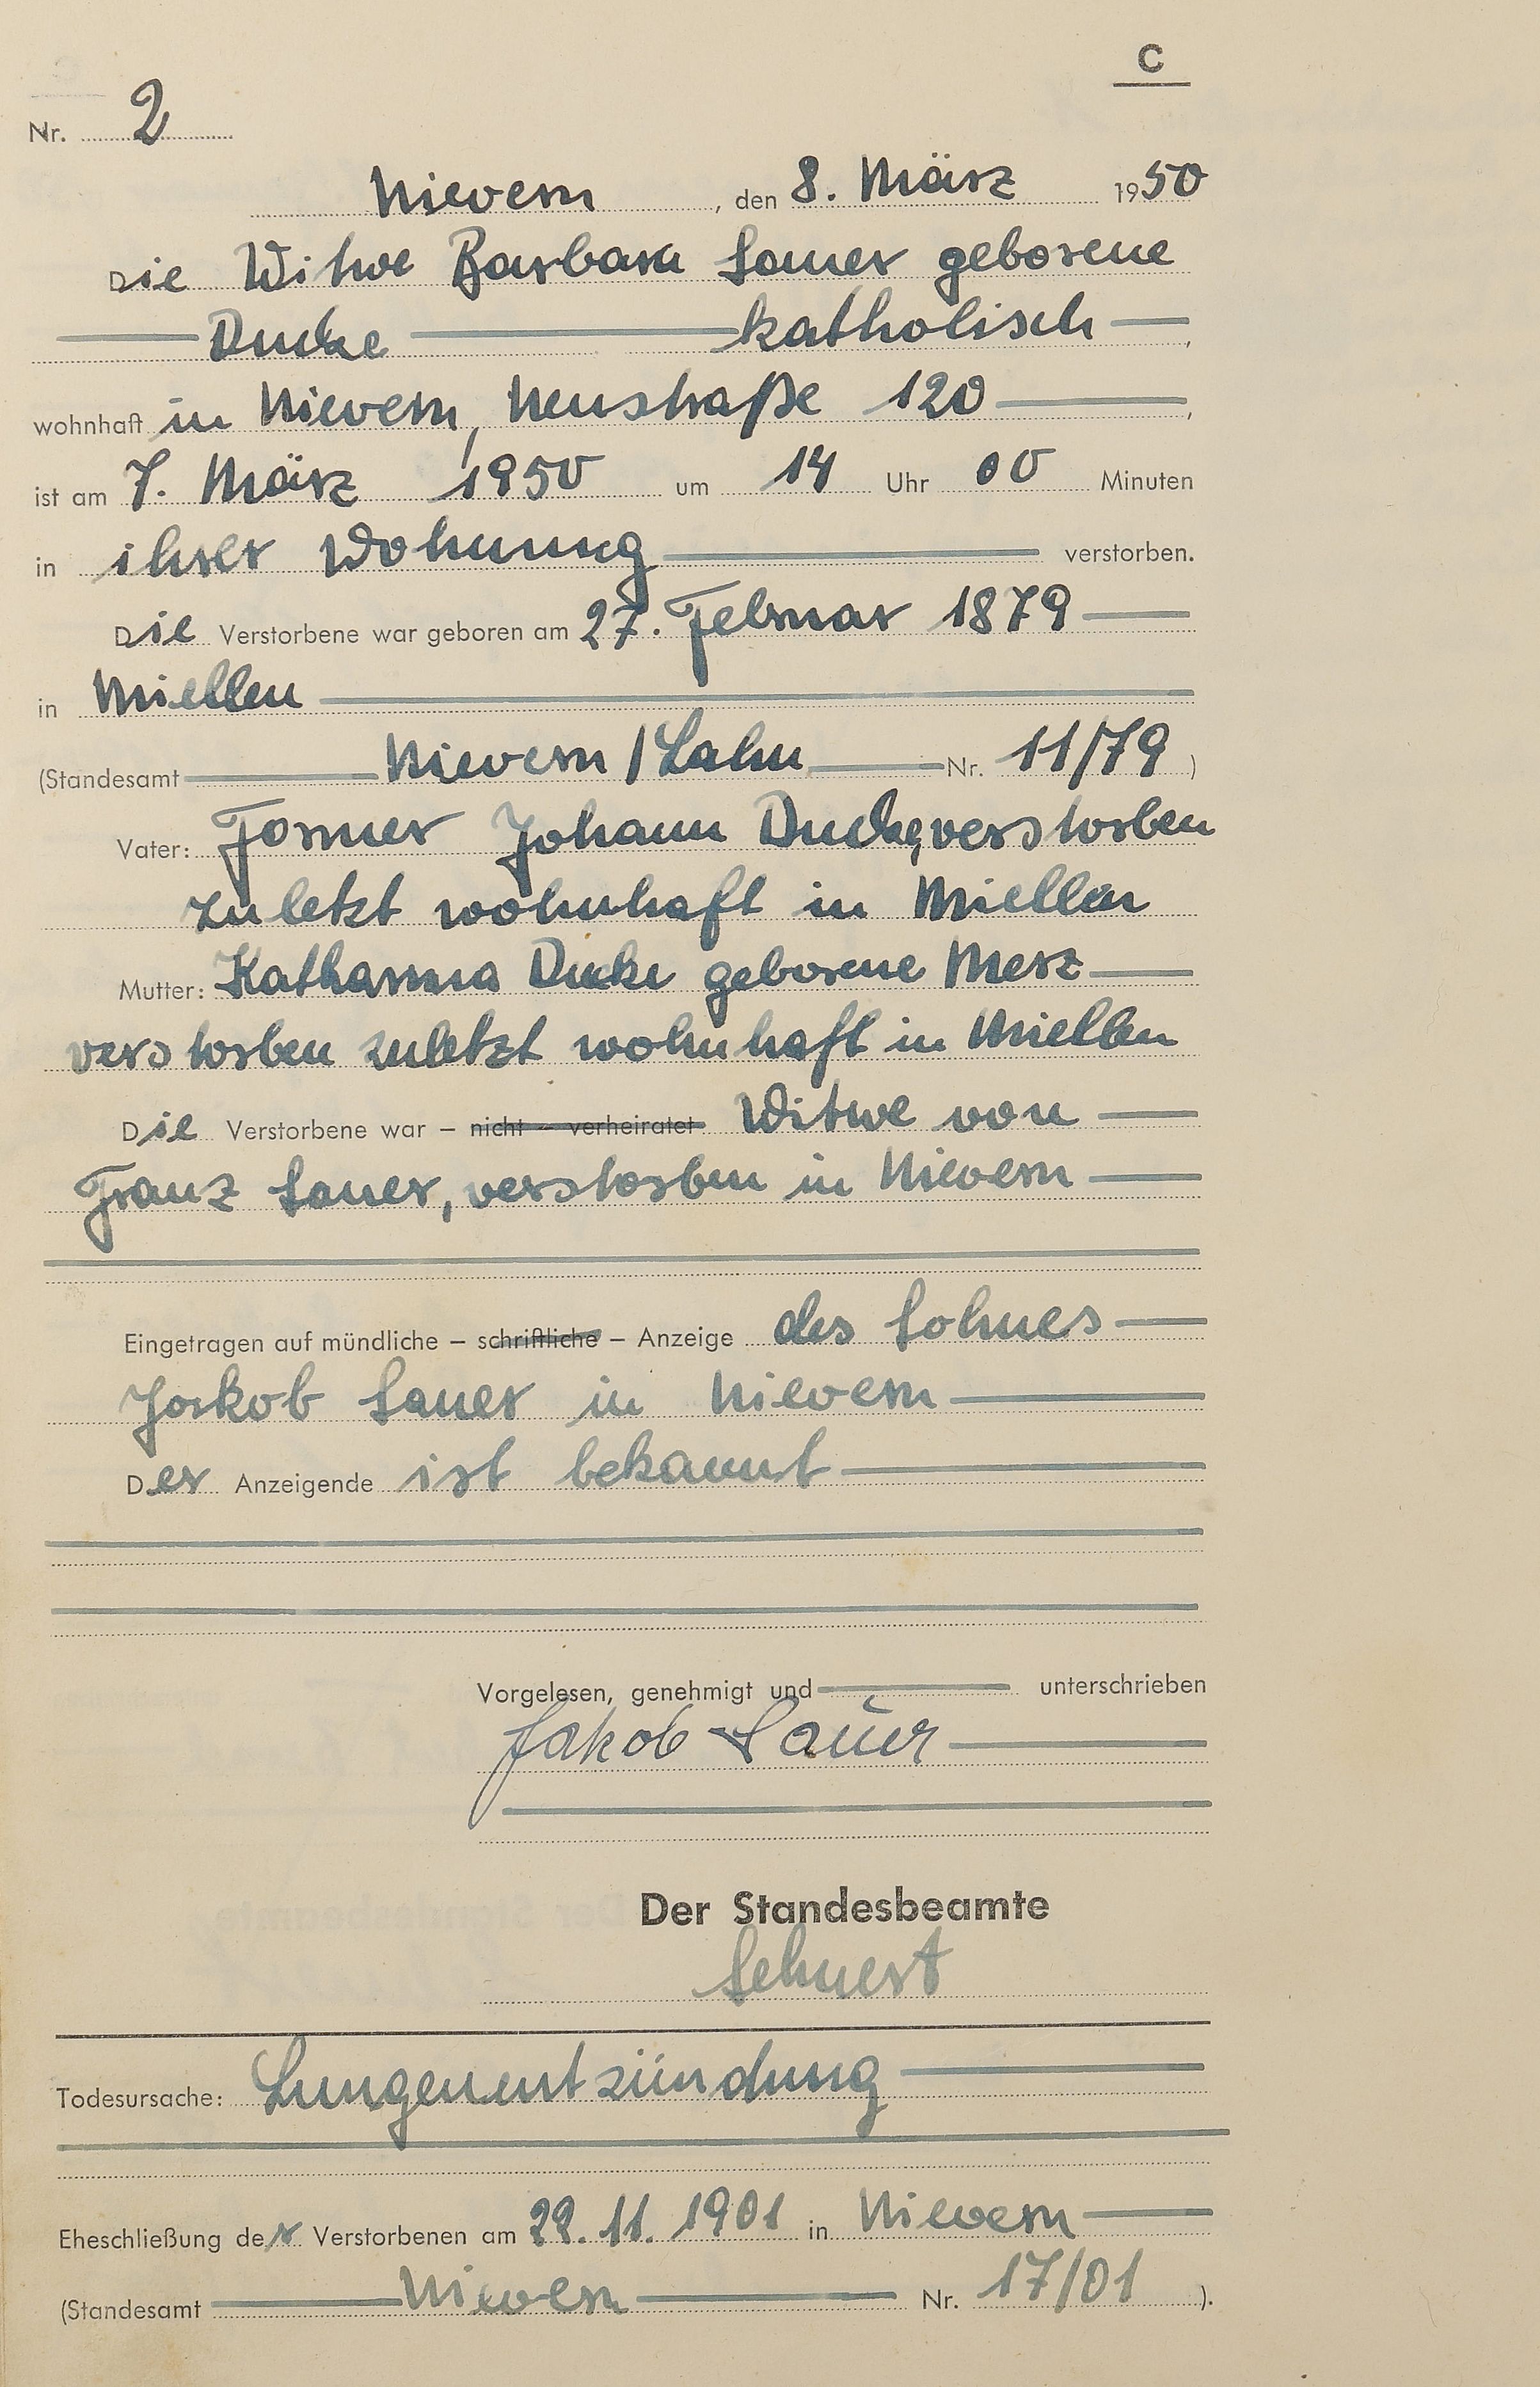 C
Nr. 2
Nievern, den 8. März 1950
Die Witwe Barbara Sauer geborene
Ducke katholisch,
wohnhaft in Nievern, Neustraße 120,
ist am 7. März 1950 um 14 Uhr 00 Minuten
in ihrer Wohnung verstorben.
Die Verstorbene war geboren am 27. Februar 1879
in Miellen
(Standesamt Nievern/Lahn Nr. 11/79)
Vater: Former Johann Ducke, verstorben
zuletzt wohnhaft in Miellen
Mutter: Katharina Ducke geborene Merz
verstorben zuletzt wohnhaft in Miellen
Die Verstorbene war – nicht – verheiratet Witwe von
Franz Sauer, verstorben in Nievern
Eingetragen auf mündliche – schriftliche – Anzeige des Sohnes
Jakob Sauer in Nievern
Der Anzeigende ist bekannt
Vorgelesen, genehmigt und unterschrieben
Jakob Sauer
Der Standesbeamte
Lehnert
Todesursache: Lungenentzündung
Eheschließung der Verstorbenen am 22.11.1901 in Nievern
(Standesamt Nievern Nr. 17/01).